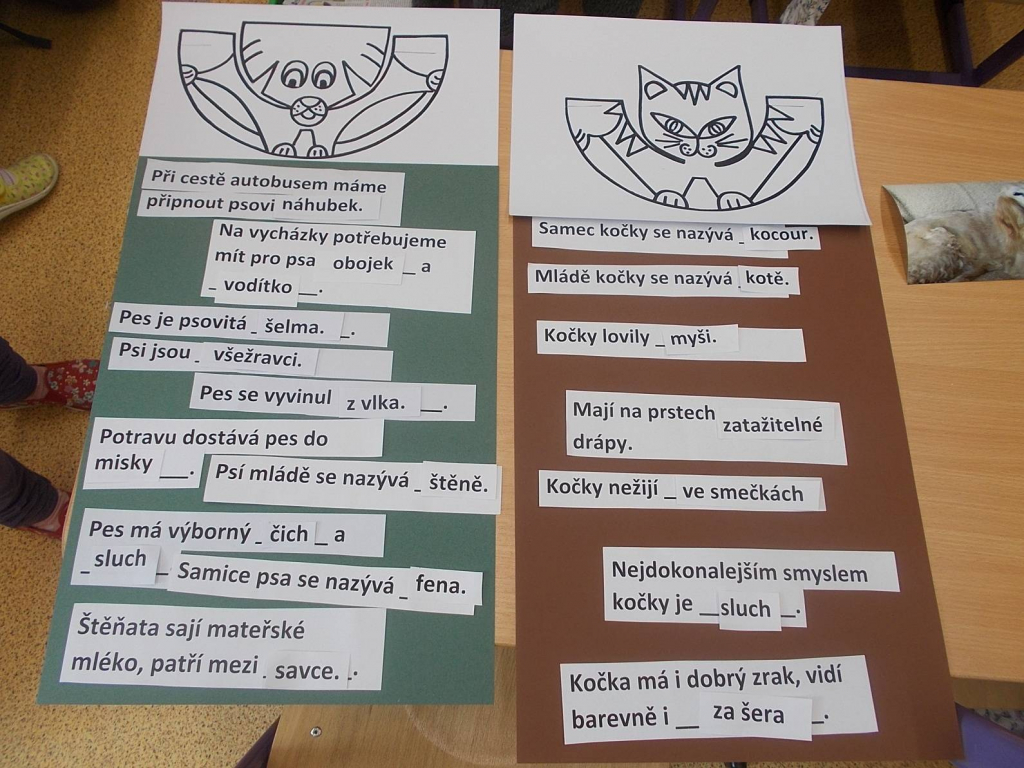 Při cestě autobusem máme
připnout psovi náhubek.
Na vycházky potřebujeme
mít pro psa obojek _ a
_ vodítko __.
Pes je psovitá _ šelma. _.
Psi jsou _ všežravci.
Pes se vyvinul z vlka. __.
Potravu dostává pes do
misky __.
Psí mládě se nazývá _ štěně.
Pes má výborný _ čich _ a
_ sluch _
Samice psa se nazývá _ fena.
Štěňata sají mateřské
mléko, patří mezi _ savce. _.
Samec kočky se nazývá _ kocour.
Mládě kočky se nazývá kotě.
Kočky lovily _ myši.
Mají na prstech zatažitelné
drápy.
Kočky nežijí _ ve smečkách
Nejdokonalejším smyslem
kočky je __ sluch __.
Kočka má i dobrý zrak, vidí
barevně i __ za šera _.